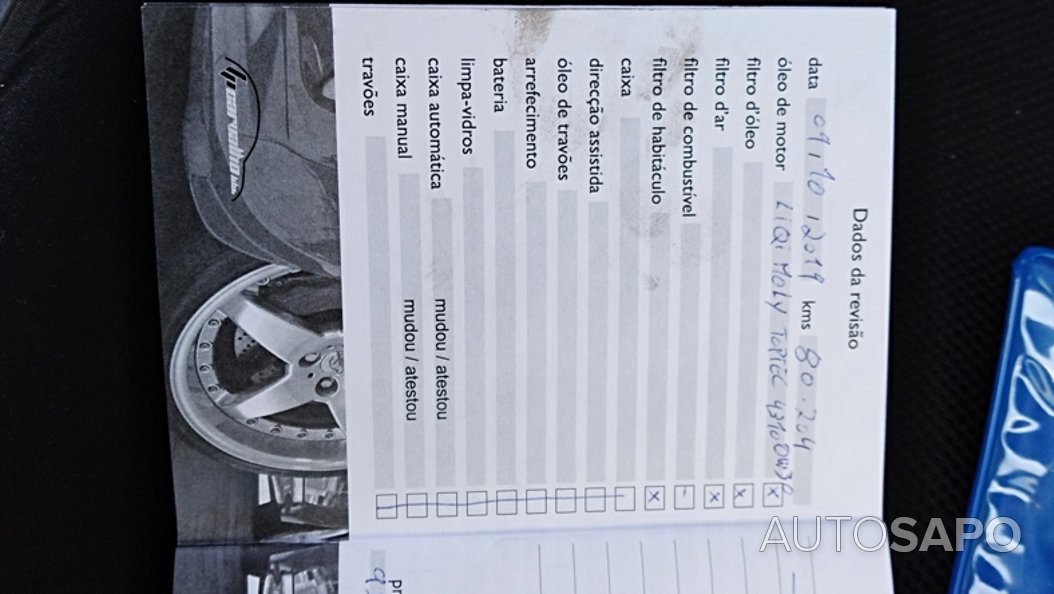 Dados da revisão
data 09/10/2019 kms 80.204
óleo de motor LiQi MOLY TOPTEC 4310 0W30 x
filtro d'óleo x
filtro d'ar x
filtro de combustível -
filtro de habitáculo x
caixa
direcção assistida
óleo de travões
arrefecimento
bateria
limpa-vidros
caixa automática mudou / atestou
caixa manual mudou / atestou
travões
AUTOSAPO